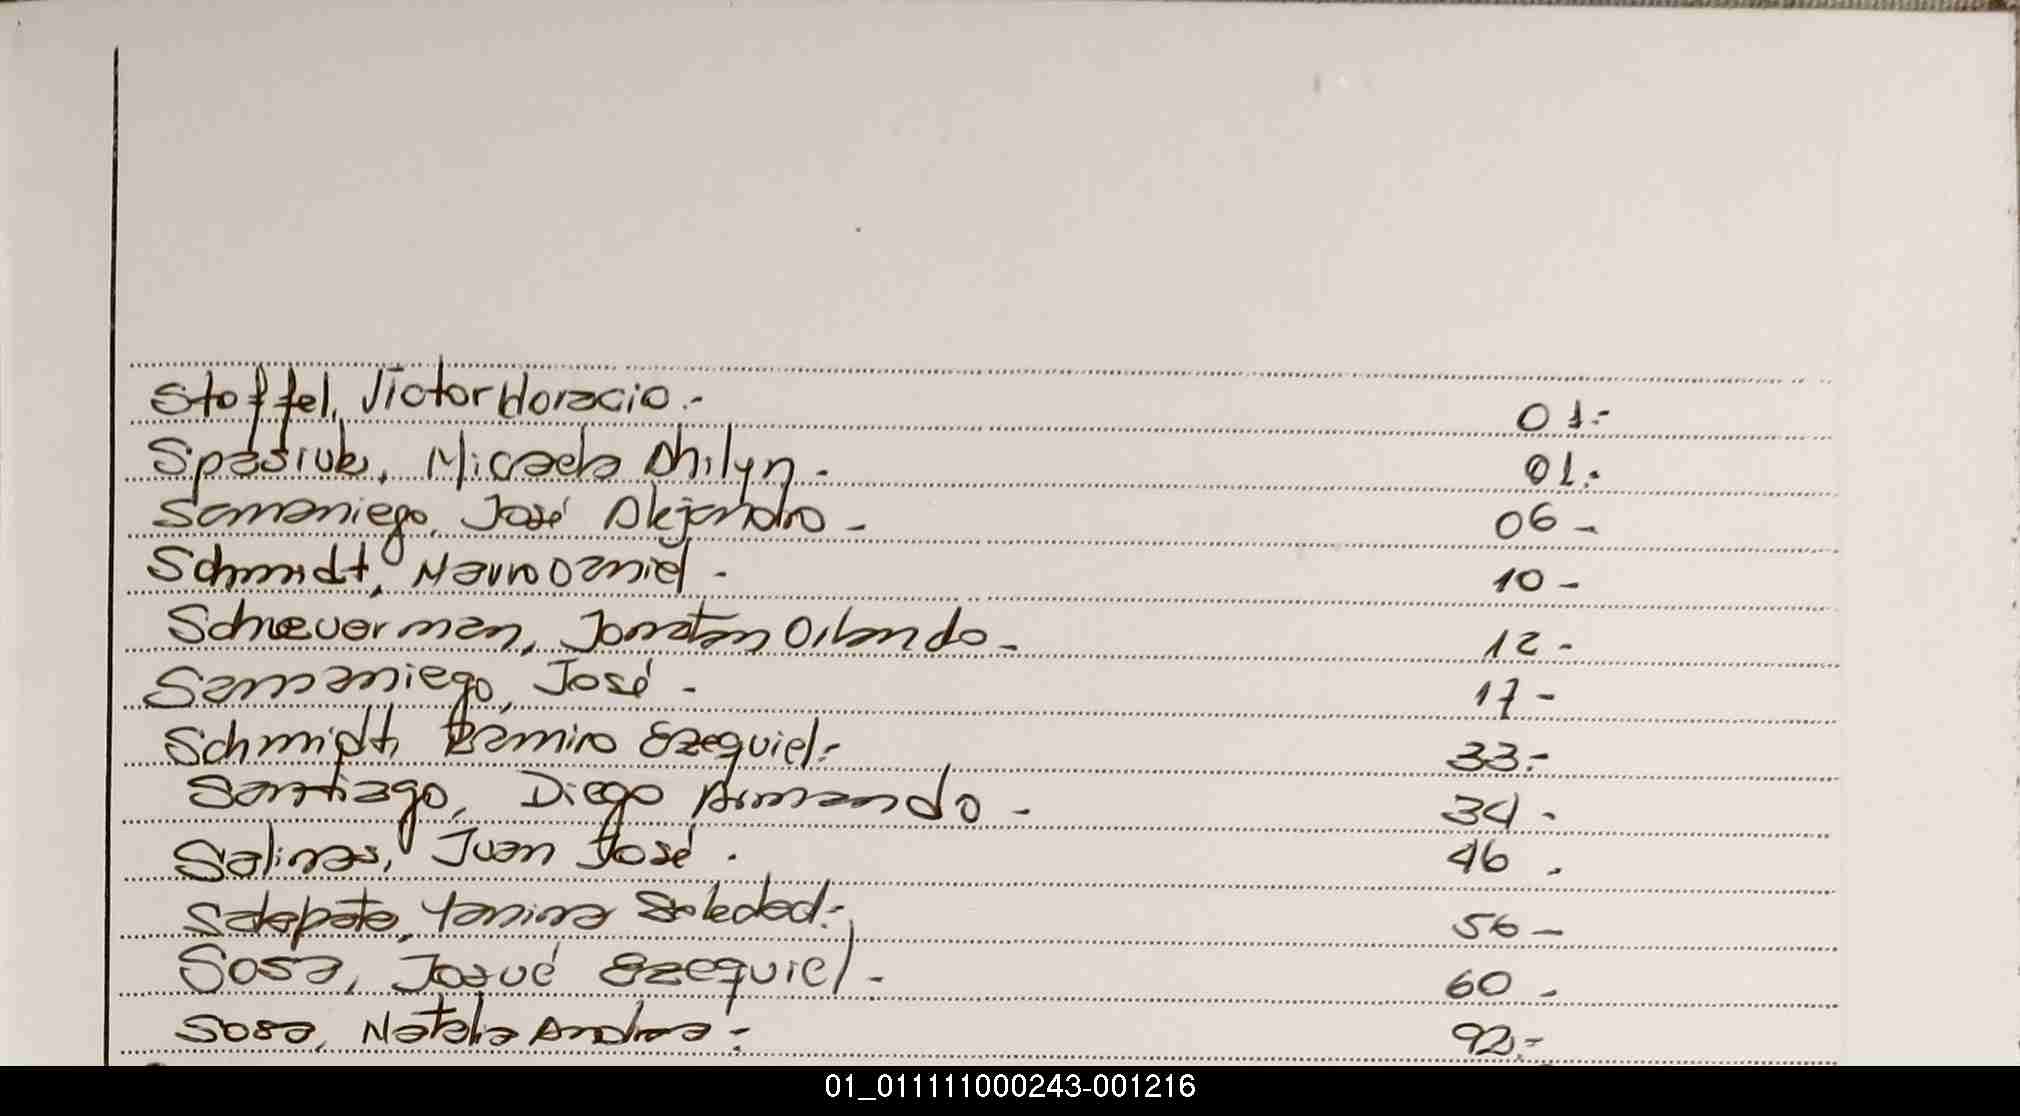 Stoffel, Víctor Horacio.- 01.-
Spasiuk, Micaela Ahilyn.- 01.-
Samaniego, José Alejandro - 06 -
Schmidt, Mauro Daniel - 10 -
Scheuerman, Jonatan Orlando - 12 -
Samaniego, José - 17 -
Schmidt, Ramiro Ezequiel.- 33.-
Santiago, Diego Armando - 34 -
Salinas, Juan José. 46 .
Yanina Soledad.- 56 -
Sosa, Josué Ezequiel - 60 -
Sosa, Natalia Andrea.- 92.-
01_011111000243-001216